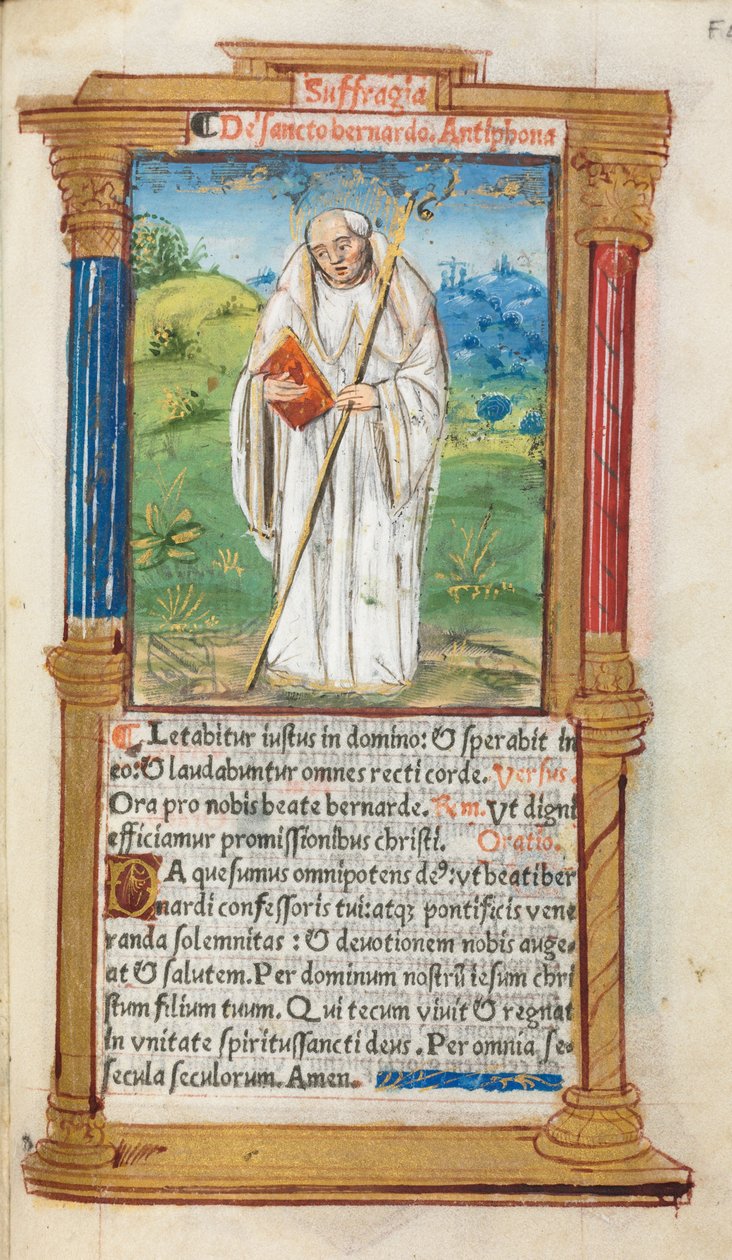 Suffragia
¶ De sancto bernardo. Antiphona
¶ Letabitur iustus in domino: & sperabit in
eo: & laudabuntur omnes recti corde. Versus.
Ora pro nobis beate bernarde. Rm. Vt digni
efficiamur promissionibus christi. Oratio.
DA quesumus omnipotens deꝰ: vt beati ber
nardi confessoris tui: atqꝫ pontificis vene
randa solemnitas: & deuotionem nobis auge-
at & salutem. Per dominum nostrū iesum chri
stum filium tuum. Qui tecum viuit & regnat
in vnitate spiritussancti deus. Per omnia se-
secula seculorum. Amen.